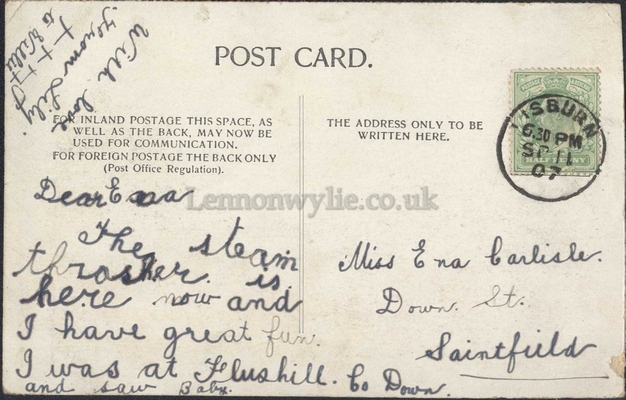 POST CARD.
With love
from Lily.
to Willie
FOR INLAND POSTAGE THIS SPACE, AS
WELL AS THE BACK, MAY NOW BE
USED FOR COMMUNICATION.
FOR FOREIGN POSTAGE THE BACK ONLY
(Post Office Regulation).
THE ADDRESS ONLY TO BE
WRITTEN HERE.
LISBURN
6.30 PM
SP 11
07
HALF PENNY
Lennonwylie.co.uk
Dear Ena
The steam
thrasher is
here now and
I have great fun.
I was at Flushill.
and saw Baby.
Miss Ena Carlisle.
Down. St.
Saintfield
Co Down.